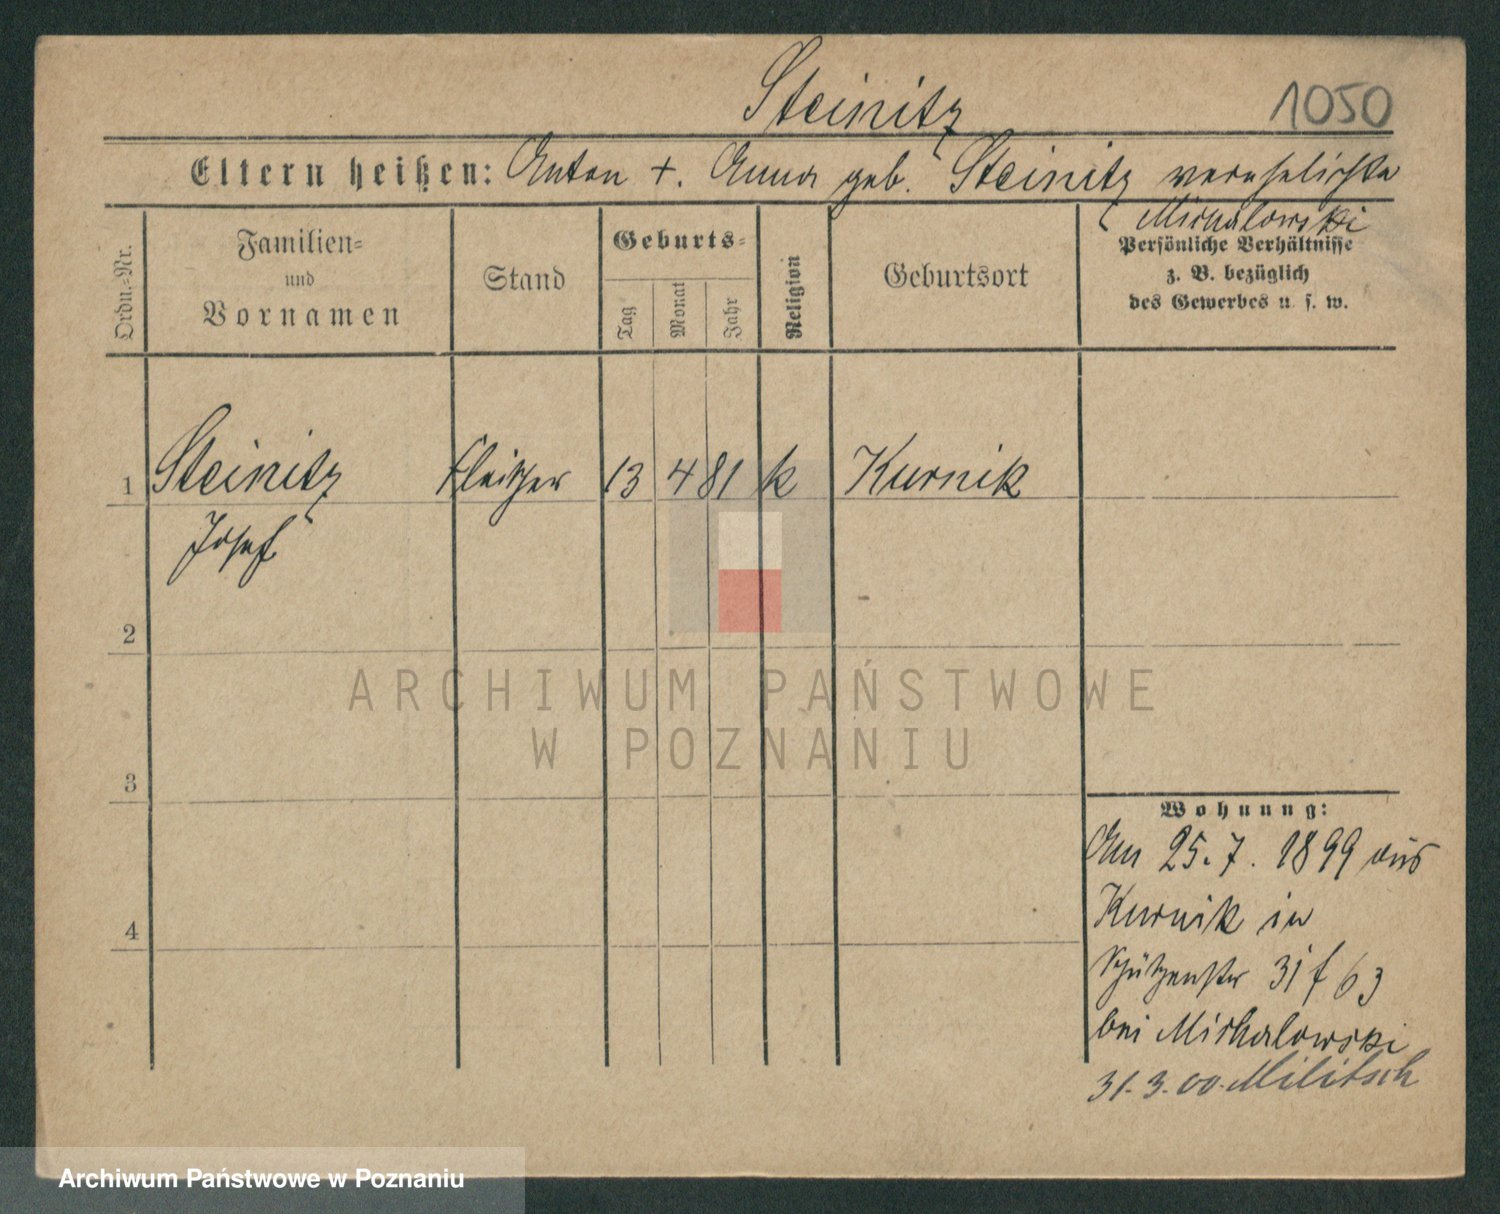 Steinitz
1050
Eltern heißen: Anton +. Anna geb. Steinitz verehelichte
Michalowski
Ordn.-Nr.
Familien-
und
Vornamen
Stand
Geburts-
Tag
Monat
Jahr
Religion
Geburtsort
Persönliche Verhältnisse
z. B. bezüglich
des Gewerbes u. s. w.
1 Steinitz 13 4 81 k Kurnik
Josef
2
ARCHIWUM PAŃSTWOWE
W POZNANIU
3
Wohnung:
Am 25.7.1899 aus
4
Kurnik in
Schützenstr 31
bei Michalowski
31.3.00. Militsch
Archiwum Państwowe w Poznaniu